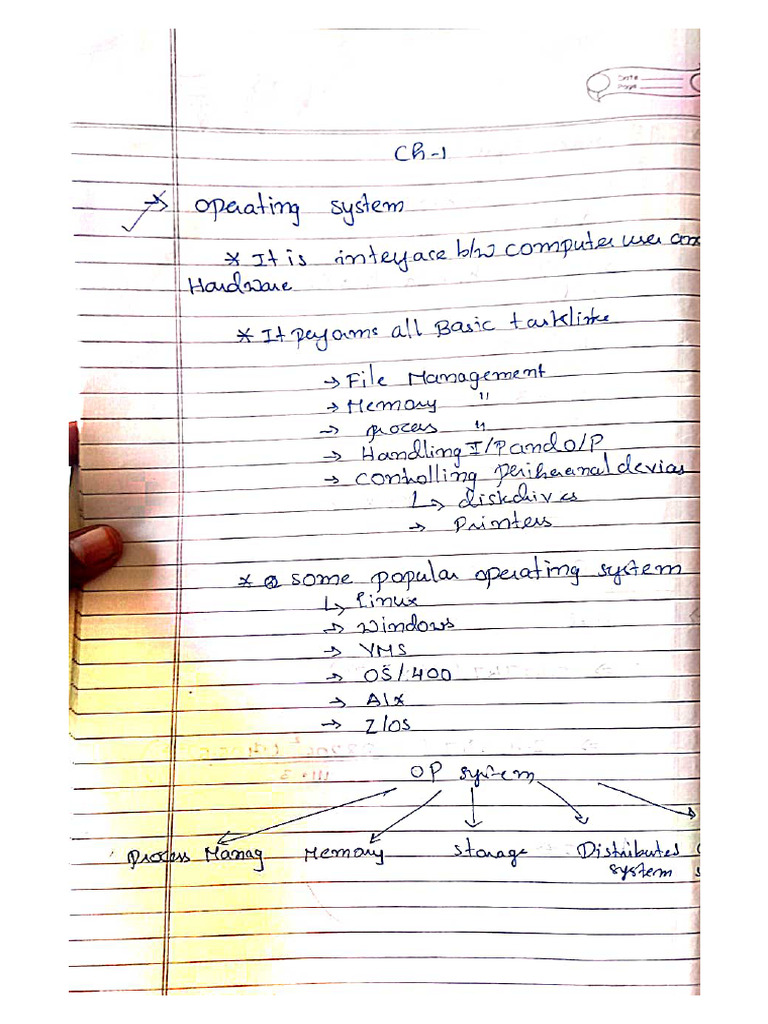 Date
Page
Ch-1
→ operating system
* It is interface b/w computer user and
Hardware
* It performs all Basic task like
→ File Management
→ Memory "
→ process "
→ Handling I/P and O/P
→ controlling periheranal devias
↳ diskdrives
→ Printers
* some popular operating system
↳ Linux
→ Windows
→ VMS
→ OS/400
→ AIX
→ Z/OS
OP system
Process Manag Memory Storage Distributed
system